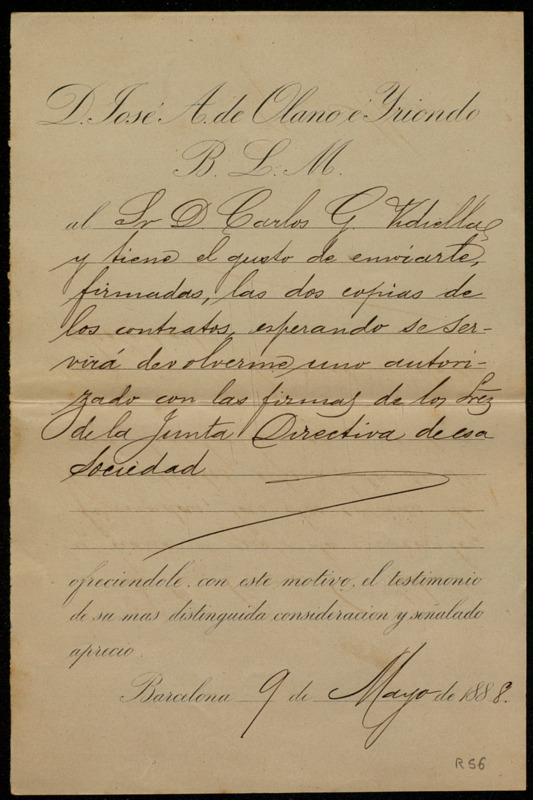 D. José A. de Olano é Yriondo
B. L. M.
al Sr D. Carlos G. Vidiella
y tiene el gusto de enviarte,
firmadas, las dos copias de
los contratos, esperando se ser-
virá devolverme uno autori-
zado con las firmas de los Sres
de la Junta Directiva de esa
Sociedad
ofreciendole, con este motivo, el testimonio
de su mas distinguida consideracion y señalado
aprecio.
Barcelona 9 de Mayo de 1888.
R56